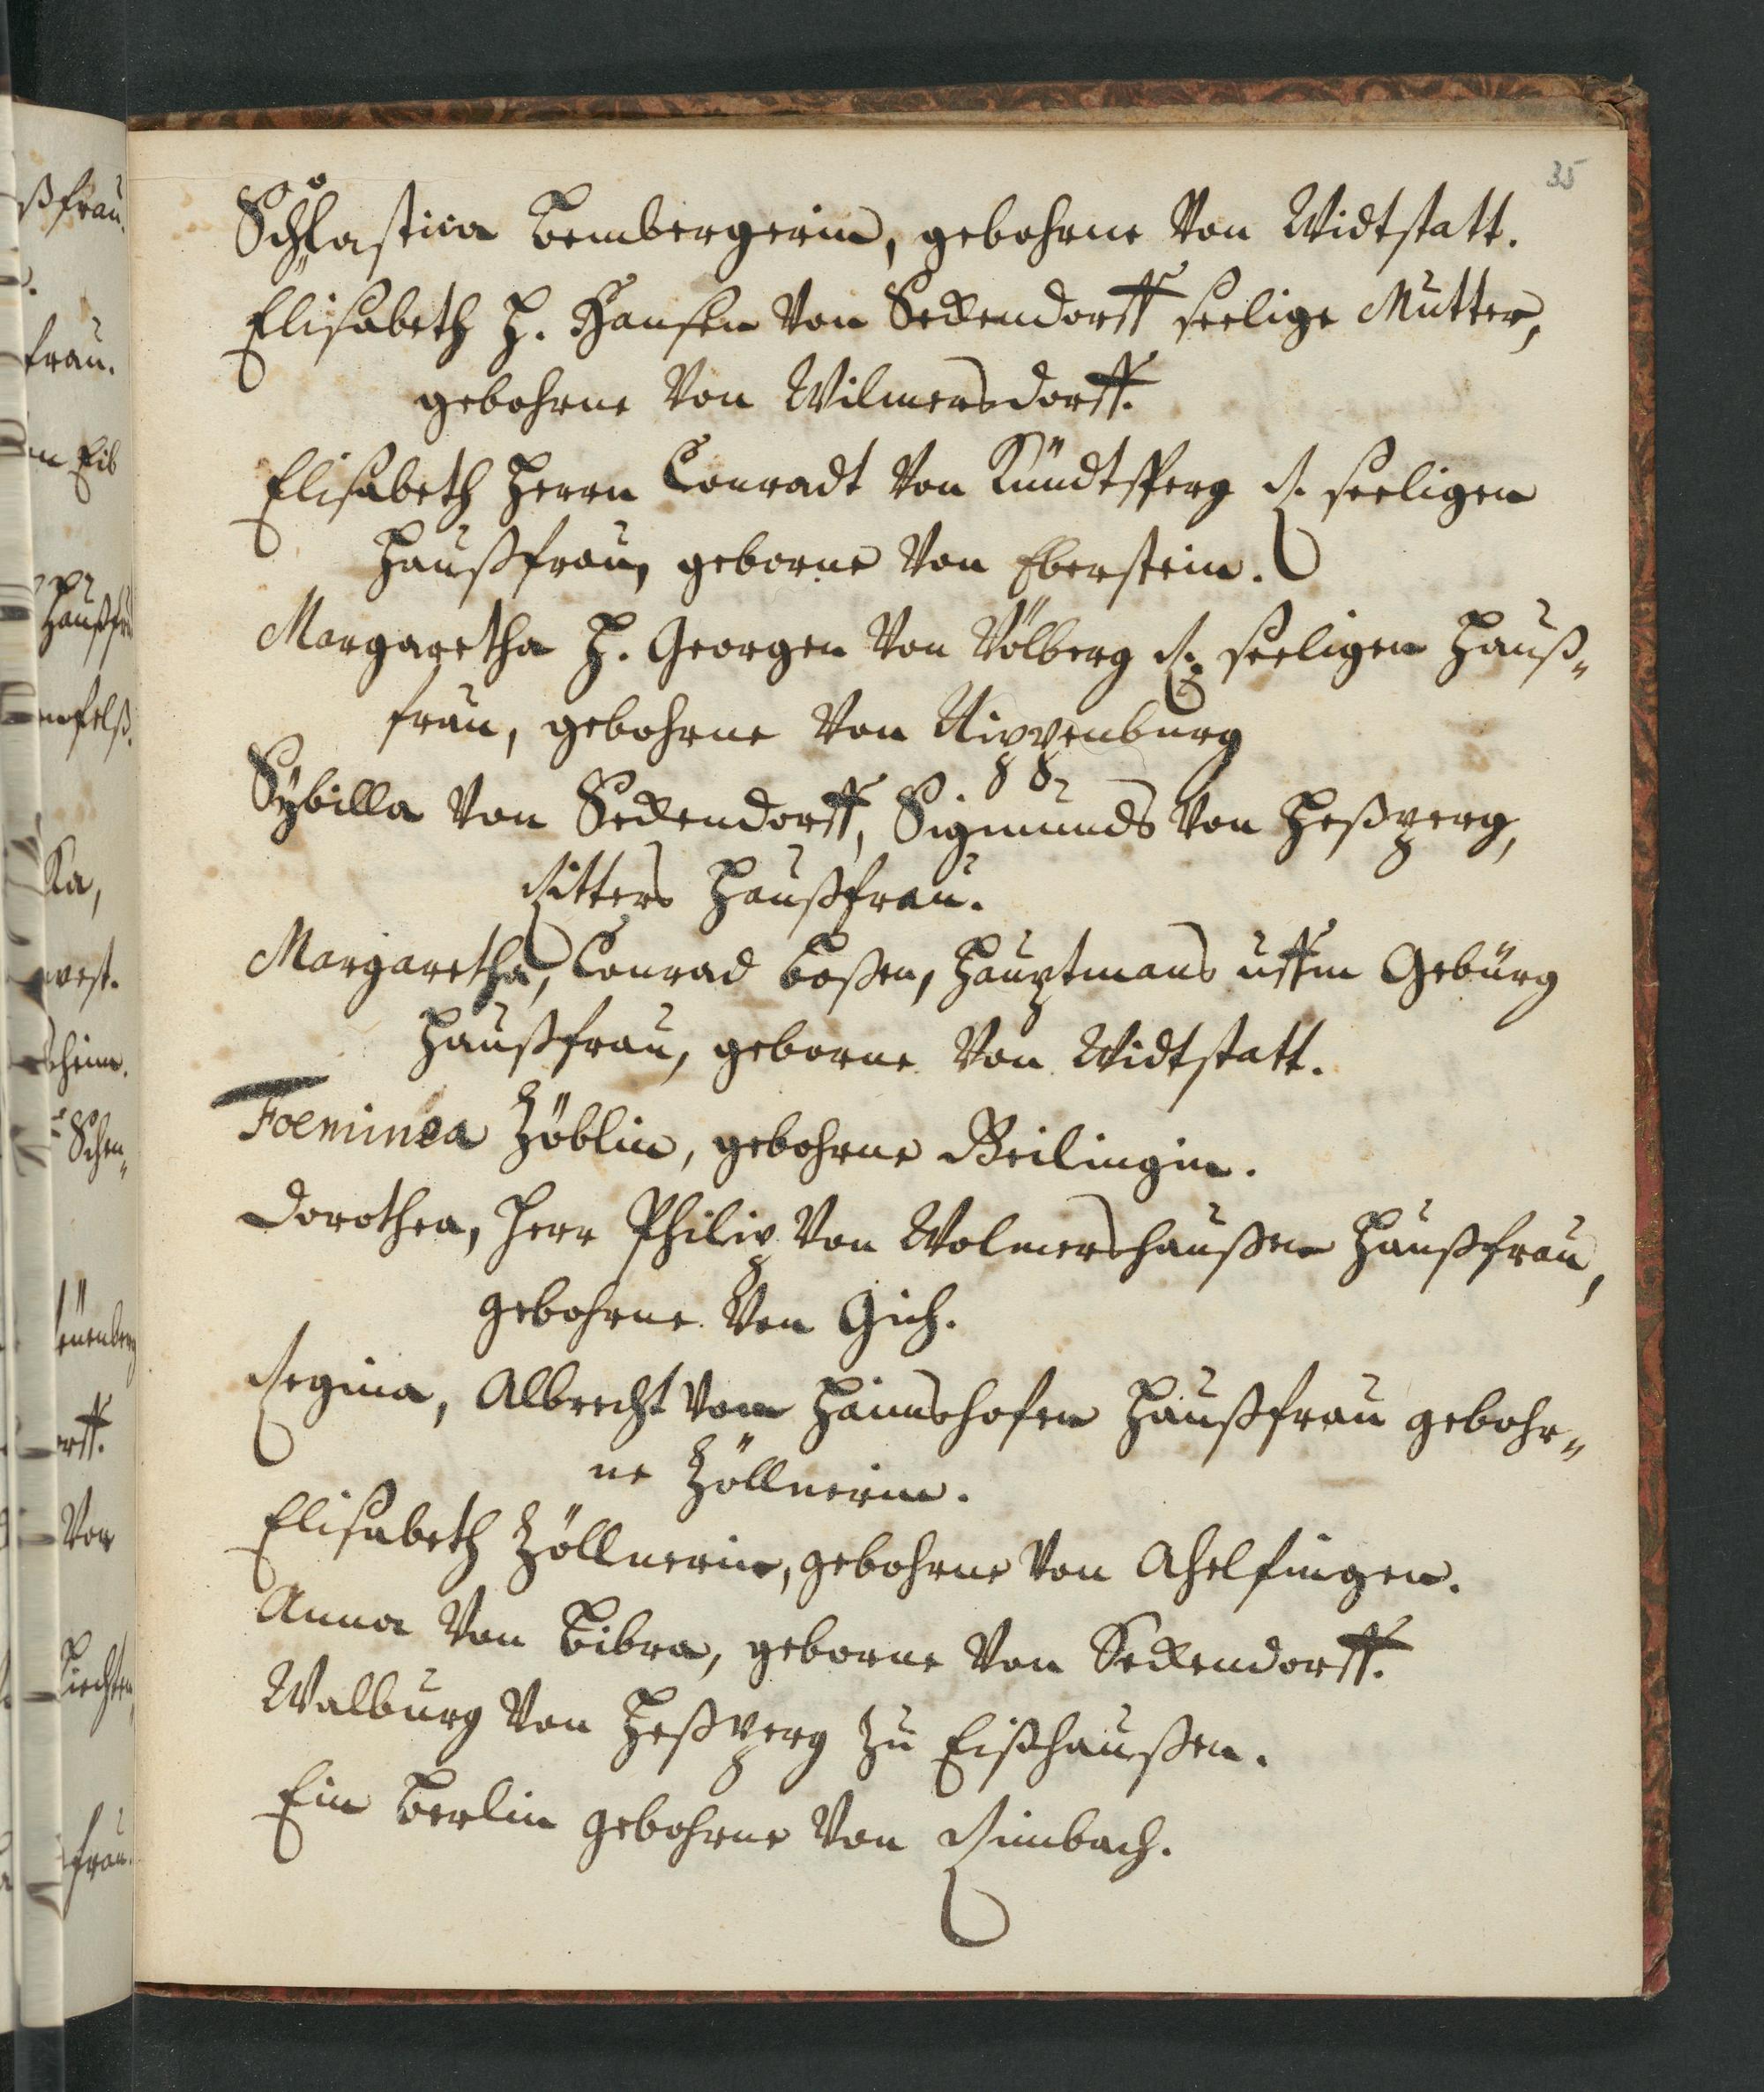 35
Schlastica Bembergerin, gebohrne Von Widtstatt.
Elisabeth H. Hansen Von Seckendorff seelige Mutter,
gebohrne Von Wilmersdorff.
Elisabeth Herrn Conradt Von Kündtsperg R. seeligen
Haußfrau, geborne Von Eberstein.
Margaretha H. Georgen Von Völberg R. seeligen Hauß„
frau, gebohrne Von Nippenburg
Sÿbilla Von Seckendorff, Sigmunds Von Heßperg,
Ritters Haußfrau.
Margaretha, Conrad Boßen, Hauptmans uffm Gebürg
Haußfrau, geborne Von Widtstatt.
Foeminea Zöblin, gebohrne Beilingin.
Dorothea, Herr Philip Von Wolmershaußen Haußfrau,
gebohrne Von Gich.
Regina, Albrecht Vom Haimshofen Haußfrau gebohr„
ne Zöllnerin.
Elisabeth Zöllnerin, gebohrne Von Ahelfingen.
Anna Von Bibra, geborne Von Seckendorff.
Walburg Von Heßperg zu Eißhaußen.
Ein Berlin gebohrne Von Rimbach.